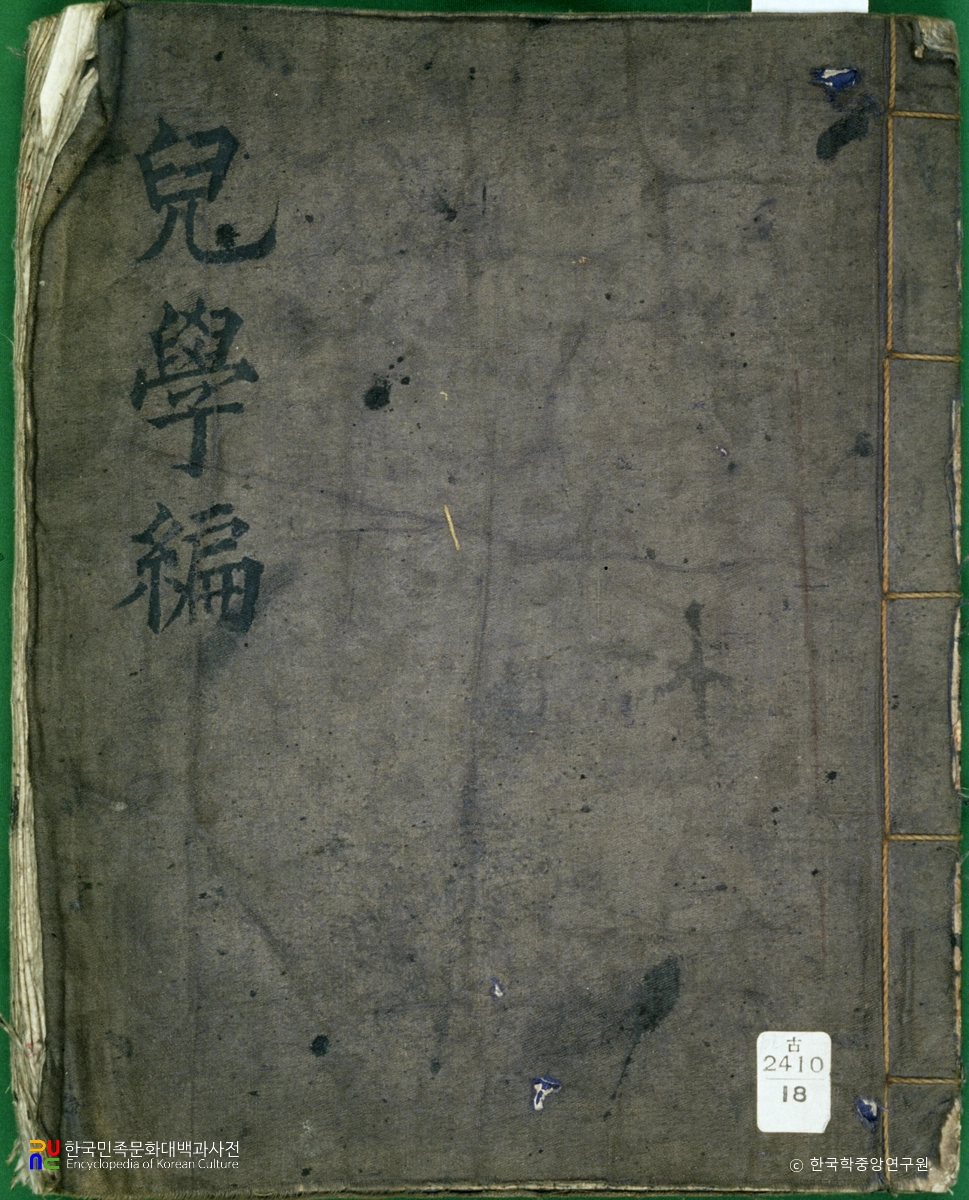 兒學編
古
2410
18
한국민족문화대백과사전
Encyclopedia of Korean Culture
© 한국학중앙연구원